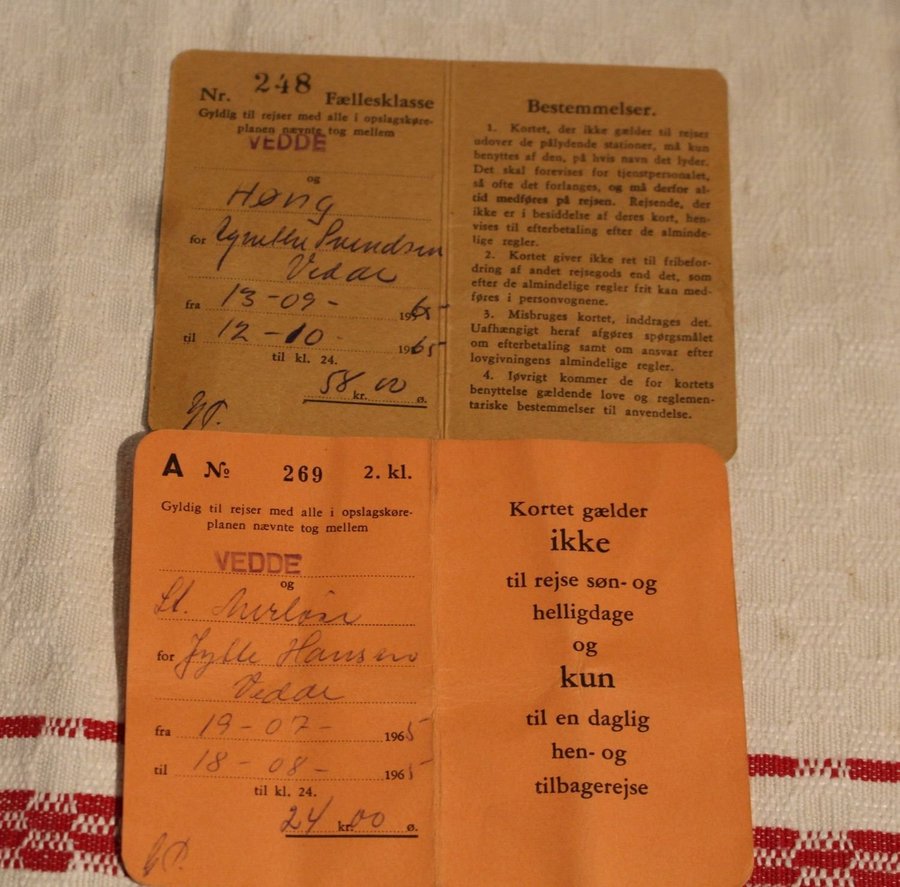 Nr. 248 Fællesklasse
Gyldig til rejser med alle i opslagskøre-
planen nævnte tog mellem
VEDDE
og
Høng
for Svendsen
Vedde
fra 13-09- 1965
til 12-10- 1965
til kl. 24.
58 kr. 00 ø.
Bestemmelser.
1. Kortet, der ikke gælder til rejser
udover de pålydende stationer, må kun
benyttes af den, på hvis navn det lyder.
Det skal forevises for tjenstpersonalet,
så ofte det forlanges, og må derfor al-
tid medføres på rejsen. Rejsende, der
ikke er i besiddelse af deres kort, hen-
vises til efterbetaling efter de alminde-
lige regler.
2. Kortet giver ikke ret til fribefor-
dring af andet rejsegods end det, som
efter de almindelige regler frit kan med-
føres i personvognene.
3. Misbruges kortet, inddrages det.
Uafhængigt heraf afgøres spørgsmålet
om efterbetaling samt om ansvar efter
lovgivningens almindelige regler.
4. Iøvrigt kommer de for kortets
benyttelse gældende love og reglemen-
tariske bestemmelser til anvendelse.
A № 269 2. kl.
Gyldig til rejser med alle i opslagskøre-
planen nævnte tog mellem
VEDDE
og
St. Merløse
for Jytte Hansen
Vedde
fra 19-07- 1965
til 18-08- 1965
til kl. 24.
24 kr. 00 ø.
Kortet gælder
ikke
til rejse søn- og
helligdage
og
kun
til en daglig
hen- og
tilbagerejse